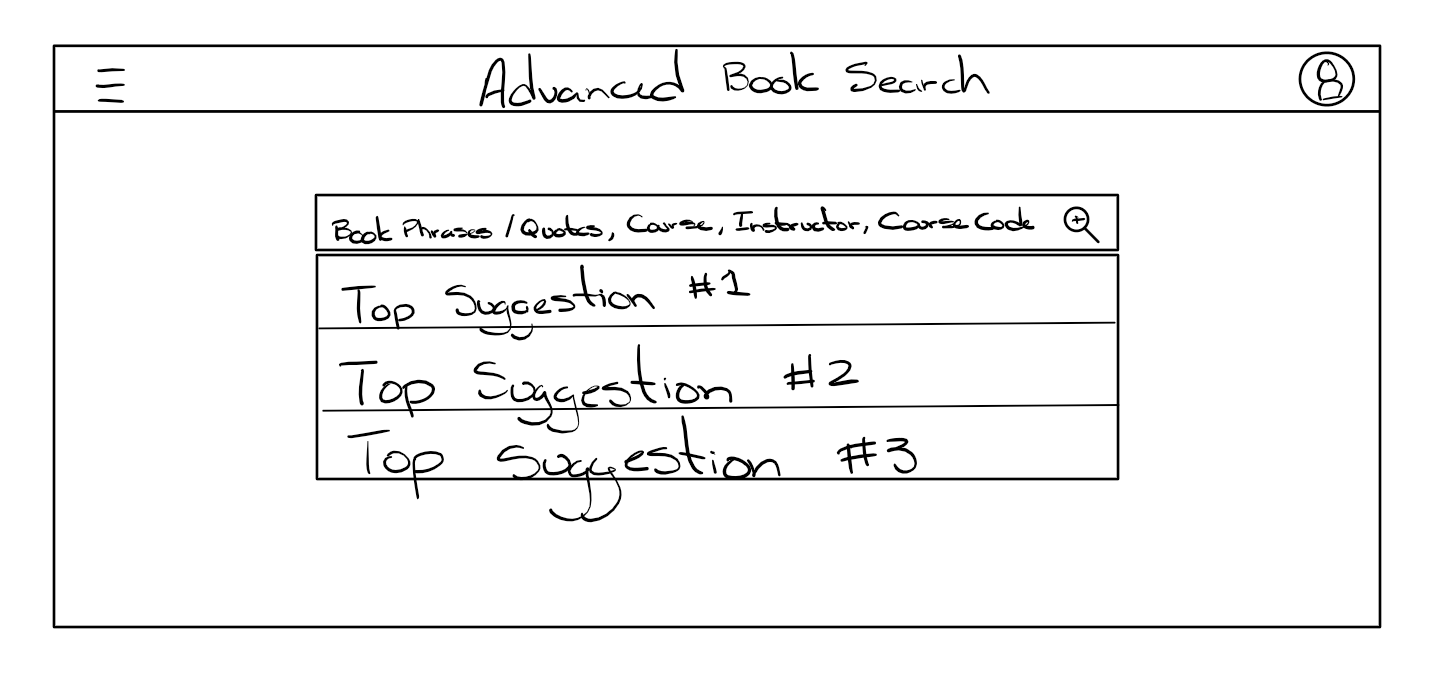 Advanced Book Search
Book Phrases / Quotes, Course, Instructor, Course Code
Top Suggestion #1
Top Suggestion #2
Top Suggestion #3